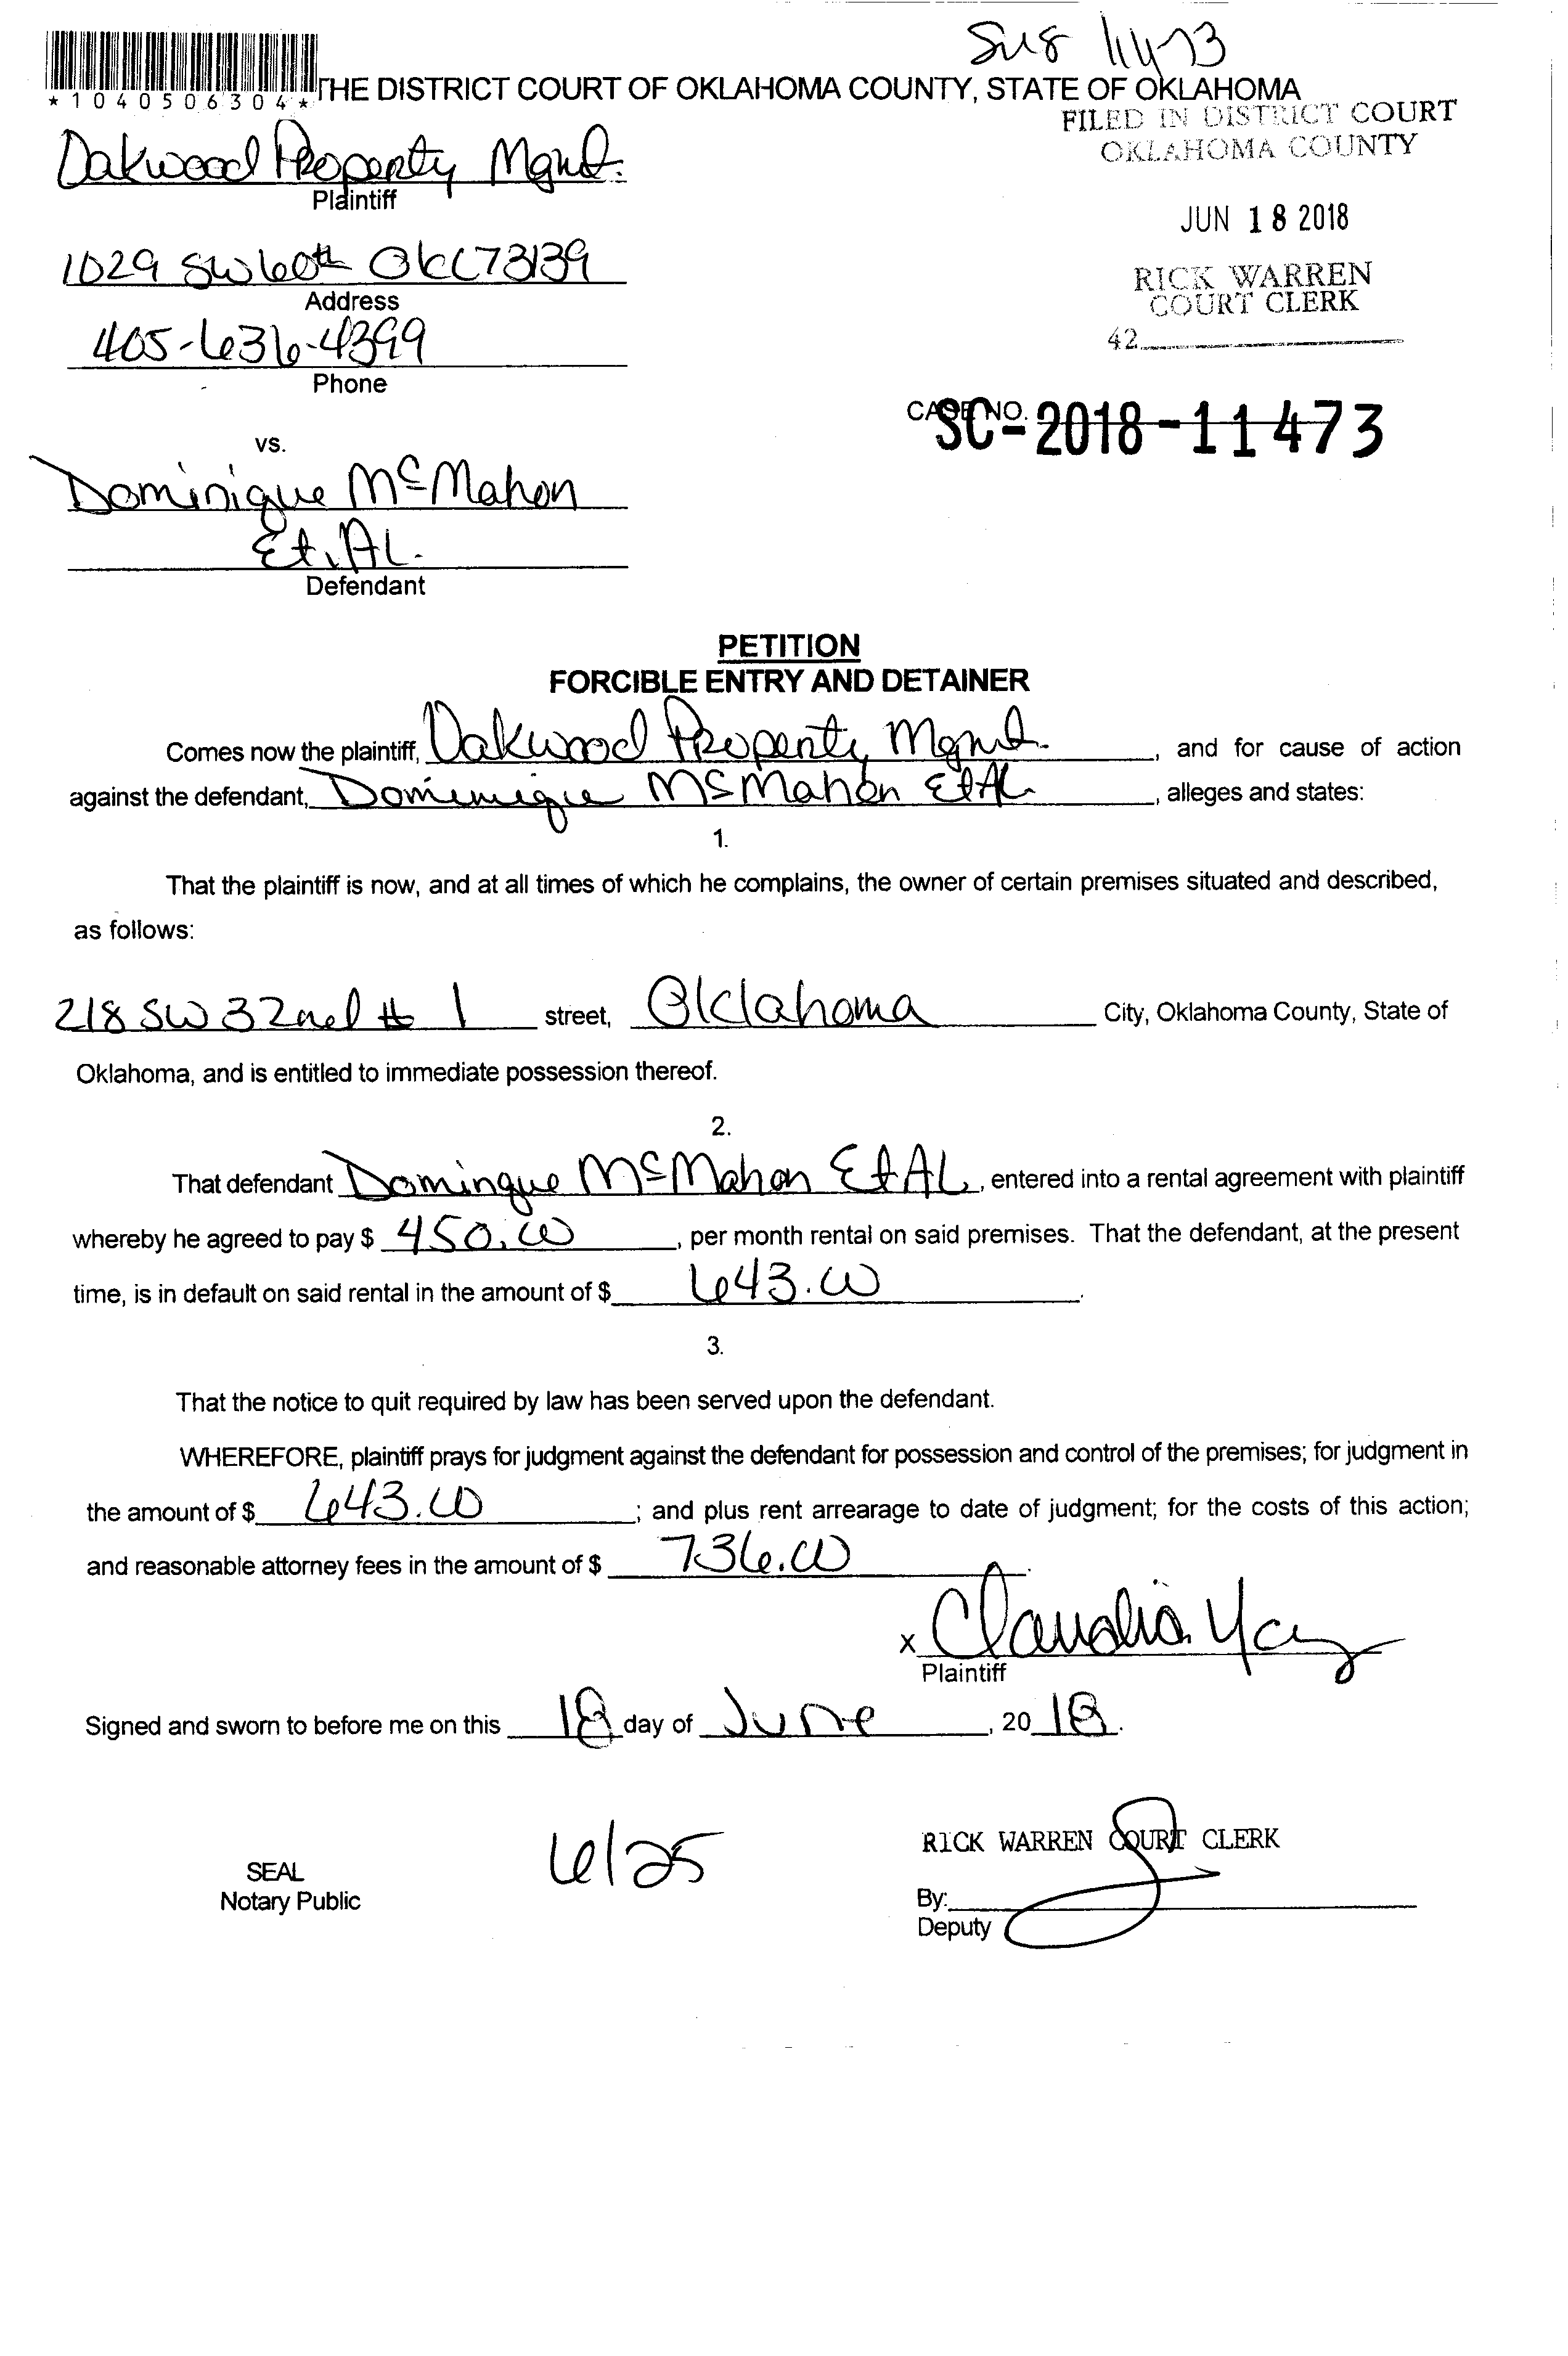 *1040506304*
THE DISTRICT COURT OF OKLAHOMA COUNTY, STATE OF OKLAHOMA
FILED IN DISTRICT COURT
OKLAHOMA COUNTY
Oakwood Property Mgmt.
Plaintiff
JUN 18 2018
1029 SW 60th OKC 73139
Address
RICK WARREN
COURT CLERK
405-636-4399
Phone
42
CASE NO. SC-2018-11473
vs.
Dominique McMahon
Et. AL.
Defendant
PETITION
FORCIBLE ENTRY AND DETAINER
Comes now the plaintiff, Oakwood Property Mgmt. , and for cause of action
against the defendant, Dominique McMahon Et AL , alleges and states:
1.
That the plaintiff is now, and at all times of which he complains, the owner of certain premises situated and described,
as follows:
218 SW 32nd # 1 street, Oklahoma City, Oklahoma County, State of
Oklahoma, and is entitled to immediate possession thereof.
2.
That defendant Domingue McMahon Et AL , entered into a rental agreement with plaintiff
whereby he agreed to pay $ 450.00 , per month rental on said premises. That the defendant, at the present
time, is in default on said rental in the amount of $ 643.00 .
3.
That the notice to quit required by law has been served upon the defendant.
WHEREFORE, plaintiff prays for judgment against the defendant for possession and control of the premises; for judgment in
the amount of $ 643.00 ; and plus rent arrearage to date of judgment; for the costs of this action;
and reasonable attorney fees in the amount of $ 736.00 .
x Claudia
Plaintiff
Signed and sworn to before me on this 18 day of June , 20 18 .
6/25
RICK WARREN COURT CLERK
SEAL
Notary Public
By:
Deputy